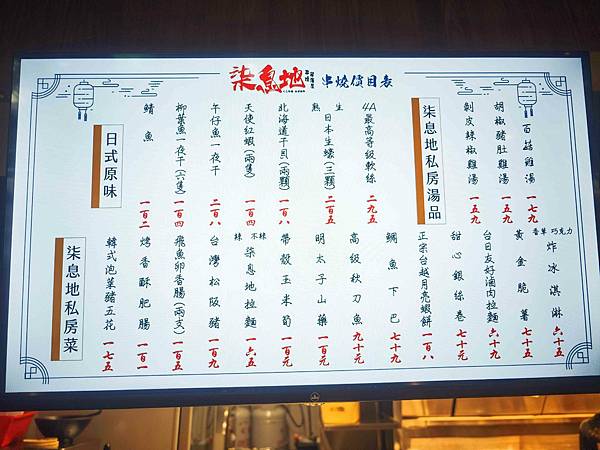 柒息地
串燒價目表
柒息地私房湯品
百菇雞湯 一七九
胡椒豬肚雞湯 一五九
剝皮辣椒雞湯 一五九
4A最高等級軟絲 二九五
生 熟 日本生蠔(三顆) 二五五
北海道干貝(兩顆) 一八八
天使紅蝦(兩隻) 一四四
午仔魚一夜干 二八八
柳葉魚一夜干(六隻) 一四四
鯖魚 一八二
日式原味
香草 巧克力 炸冰淇淋 六十五
黃金脆薯 七十五
台日友好滷肉拉麵 六十九
甜心銀絲卷 七十元
正宗台越月亮蝦餅 一八八
鯛魚下巴 七十九
高級秋刀魚 九十元
明太子山藥 一百元
帶殼玉米筍 一百元
辣 不辣 柒息地拉麵 一六五
台灣松阪豬 一百九
飛魚卵香腸(兩支) 一百五
烤香酥肥腸 一百一
韓式泡菜豬五花 一七五
柒息地私房菜